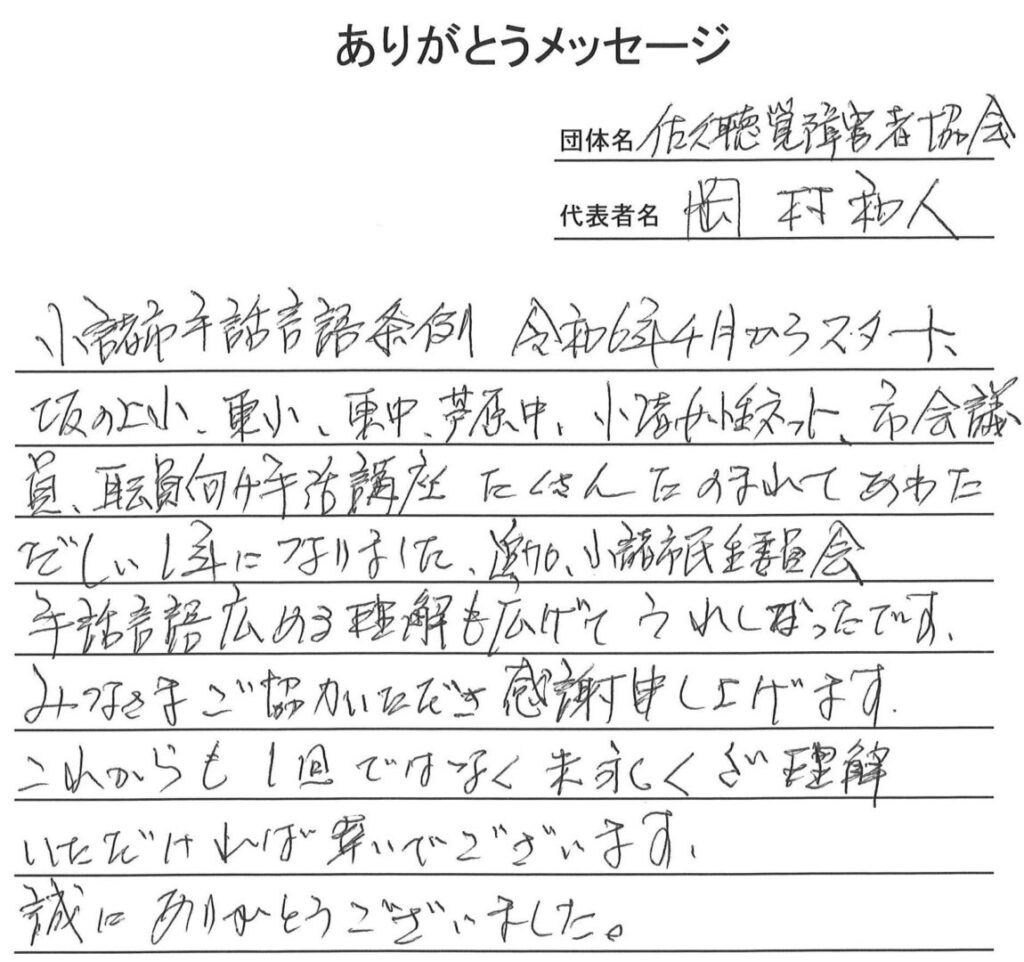 ありがとうメッセージ
団体名 佐久聴覚障害者協会
代表者名 岡村和人
小諸市手話言語条例 令和6年4月からスタート、
坂の上小、東小、東中、芦原中、小諸女性ネット、市会議
員、職員向け手話講座 たくさんたのまれてあわた
だしい1年になりました、追加、小諸市民生委員会
手話言語広める理解も広げてうれしかったです。
みなさまご協力いただき感謝申し上げます。
これからも1回ではなく末永くご理解
いただければ幸いでございます。
誠にありがとうございました。